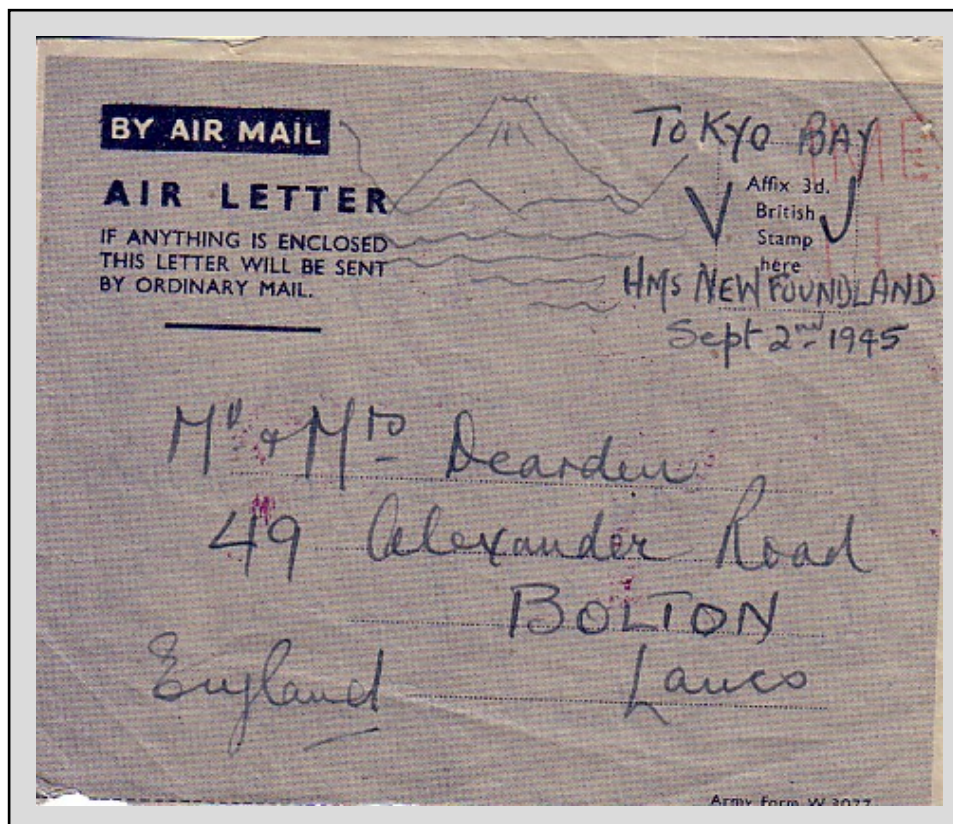 BY AIR MAIL
AIR LETTER
IF ANYTHING IS ENCLOSED
THIS LETTER WILL BE SENT
BY ORDINARY MAIL.
TOKYO BAY
Affix 3d.
British
Stamp
here
V J
HMS NEWFOUNDLAND
Sept 2nd 1945
Mr & Mrs Dearden
49 Alexander Road
BOLTON
England Lancs
Army Form W 3077